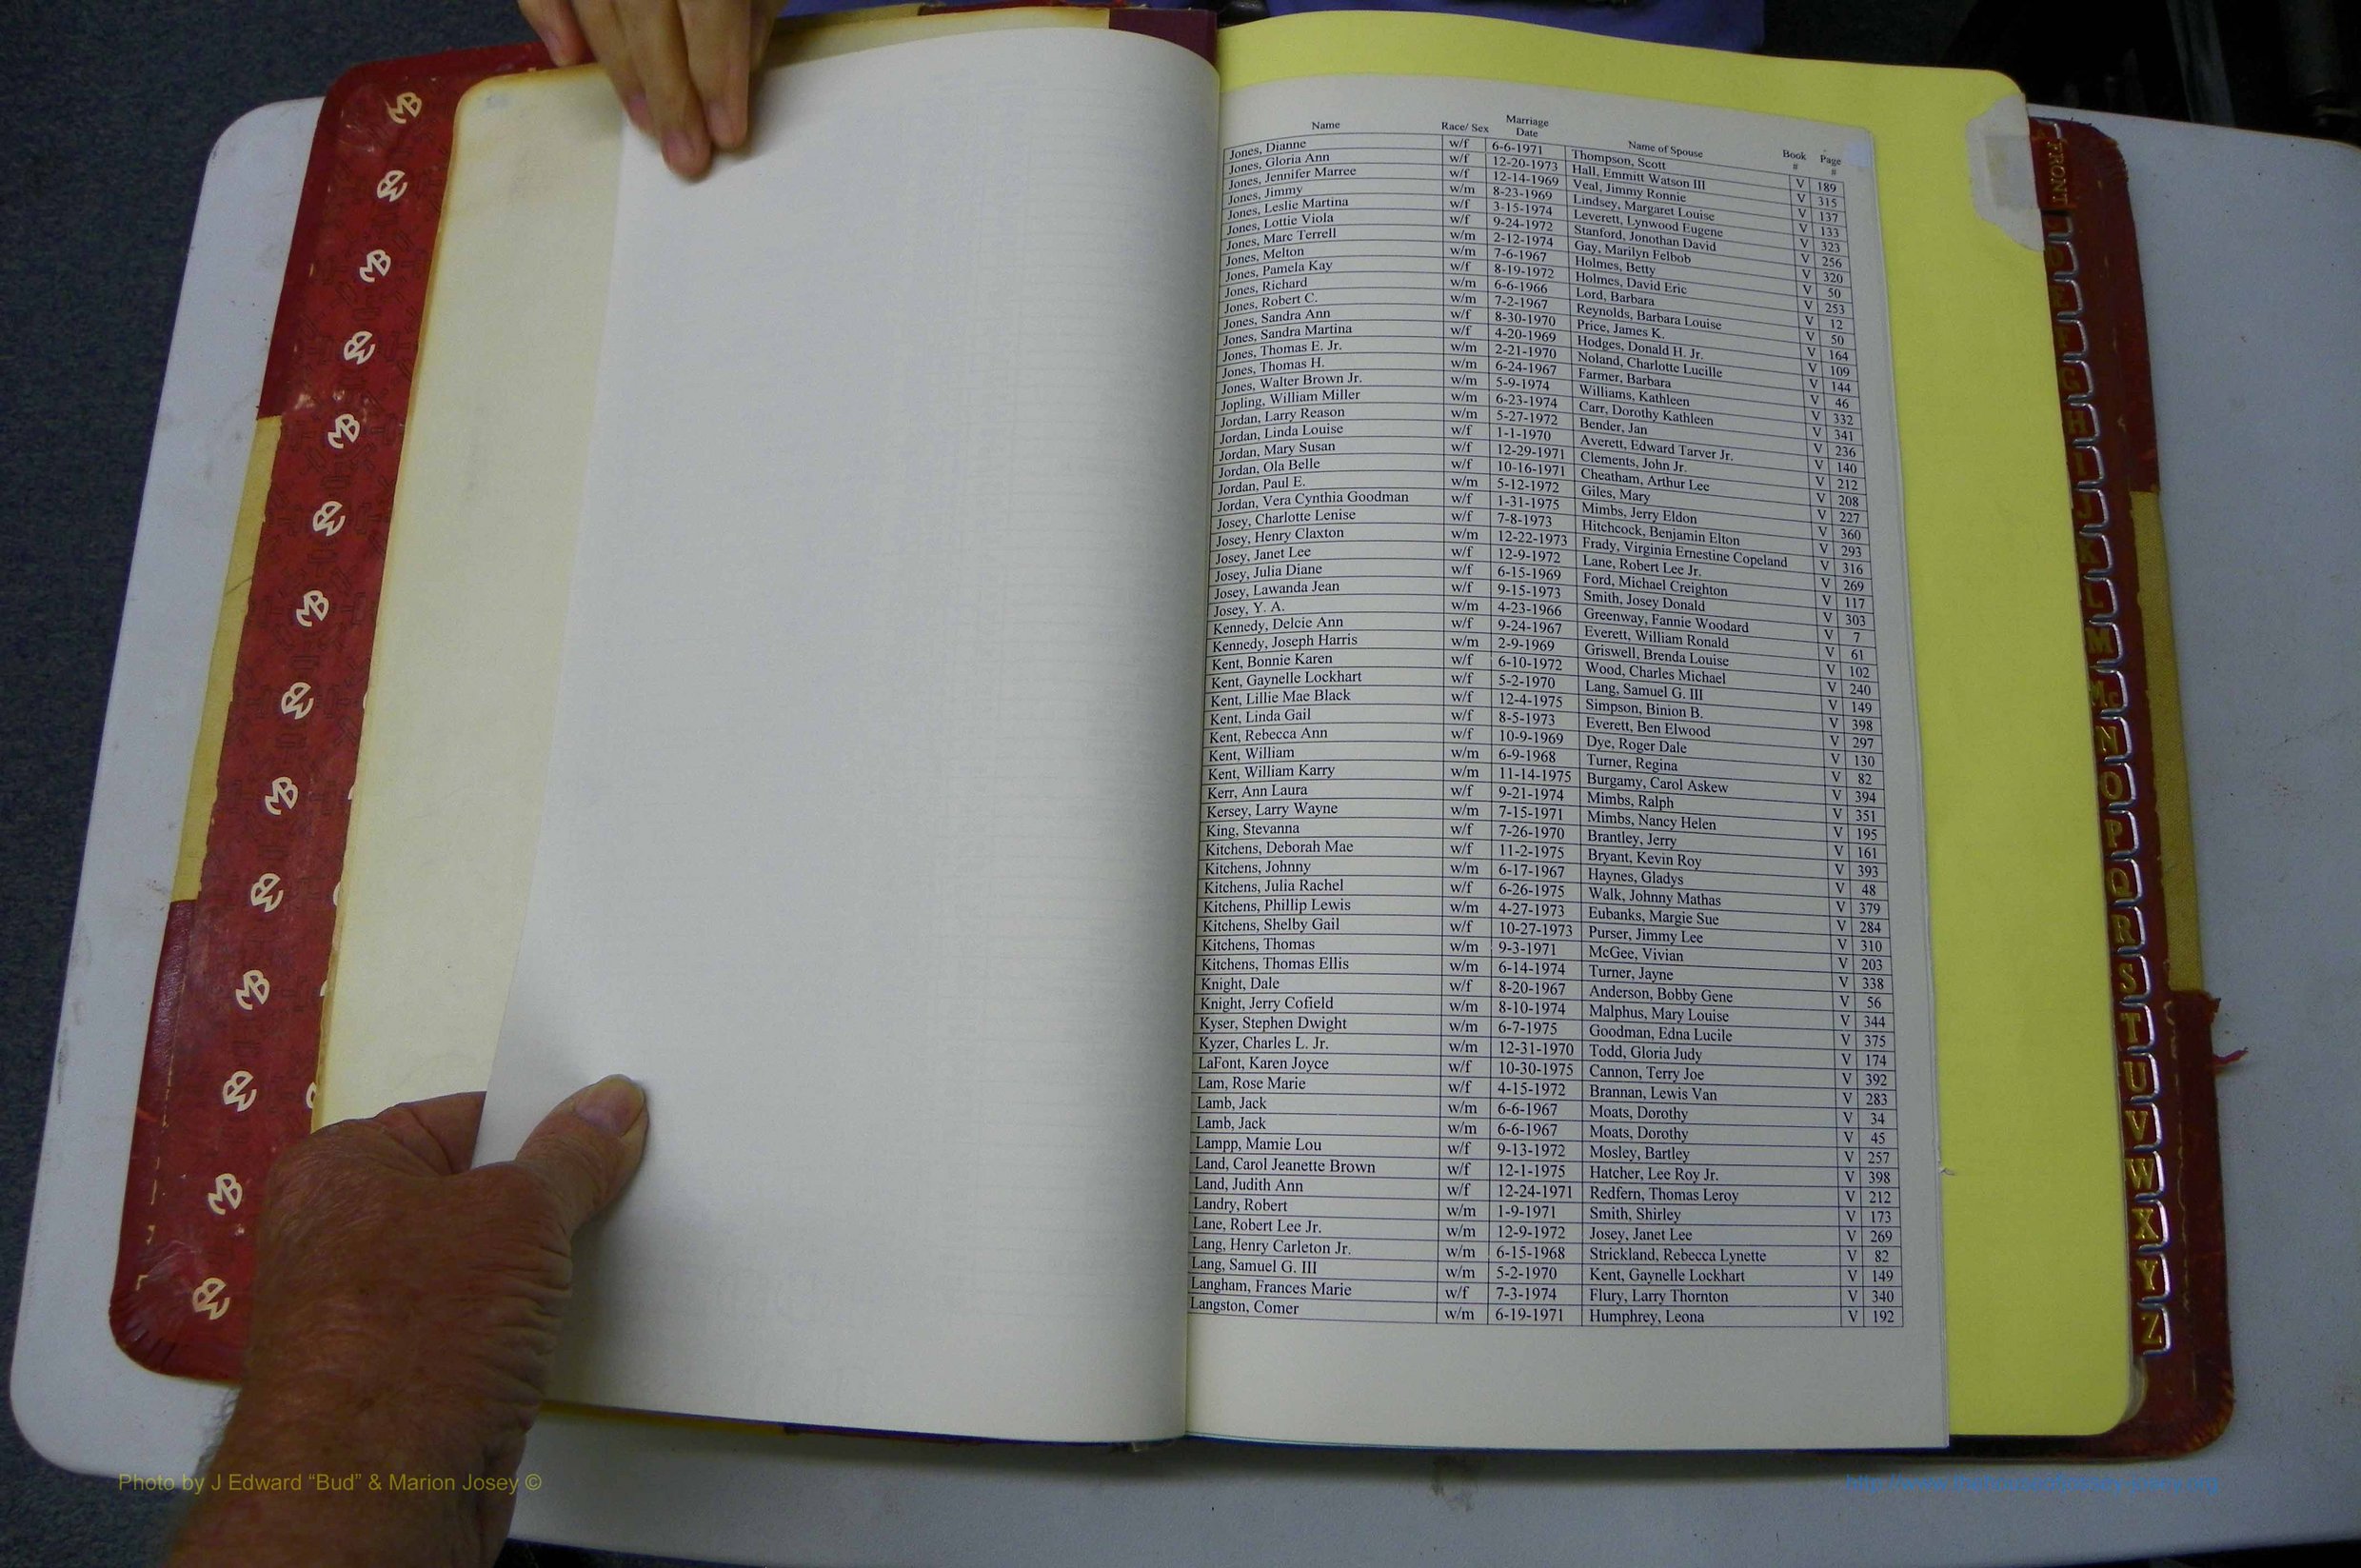 Name Race/ Sex Marriage Date Name of Spouse Book # Page #
Jones, Dianne w/f 6-6-1971 Thompson, Scott V 189
Jones, Gloria Ann w/f 12-20-1973 Hall, Emmitt Watson III V 315
Jones, Jennifer Marree w/f 12-14-1969 Veal, Jimmy Ronnie V 137
Jones, Jimmy w/m 8-23-1969 Lindsey, Margaret Louise V 133
Jones, Leslie Martina w/f 3-15-1974 Leverett, Lynwood Eugene V 323
Jones, Lottie Viola w/f 9-24-1972 Stanford, Jonothan David V 256
Jones, Marc Terrell w/m 2-12-1974 Gay, Marilyn Felbob V 320
Jones, Melton w/m 7-6-1967 Holmes, Betty V 50
Jones, Pamela Kay w/f 8-19-1972 Holmes, David Eric V 253
Jones, Richard w/m 6-6-1966 Lord, Barbara V 12
Jones, Robert C. w/m 7-2-1967 Reynolds, Barbara Louise V 50
Jones, Sandra Ann w/f 8-30-1970 Price, James K. V 164
Jones, Sandra Martina w/f 4-20-1969 Hodges, Donald H. Jr. V 109
Jones, Thomas E. Jr. w/m 2-21-1970 Noland, Charlotte Lucille V 144
Jones, Thomas H. w/m 6-24-1967 Farmer, Barbara V 46
Jones, Walter Brown Jr. w/m 5-9-1974 Williams, Kathleen V 332
Jopling, William Miller w/m 6-23-1974 Carr, Dorothy Kathleen V 341
Jordan, Larry Reason w/m 5-27-1972 Bender, Jan V 236
Jordan, Linda Louise w/f 1-1-1970 Averett, Edward Tarver Jr. V 140
Jordan, Mary Susan w/f 12-29-1971 Clements, John Jr. V 212
Jordan, Ola Belle w/f 10-16-1971 Cheatham, Arthur Lee V 208
Jordan, Paul E. w/m 5-12-1972 Giles, Mary V 227
Jordan, Vera Cynthia Goodman w/f 1-31-1975 Mimbs, Jerry Eldon V 360
Josey, Charlotte Lenise w/f 7-8-1973 Hitchcock, Benjamin Elton V 293
Josey, Henry Claxton w/m 12-22-1973 Frady, Virginia Ernestine Copeland V 316
Josey, Janet Lee w/f 12-9-1972 Lane, Robert Lee Jr. V 269
Josey, Julia Diane w/f 6-15-1969 Ford, Michael Creighton V 117
Josey, Lawanda Jean w/f 9-15-1973 Smith, Josey Donald V 303
Josey, Y. A. w/m 4-23-1966 Greenway, Fannie Woodard V 7
Kennedy, Delcie Ann w/f 9-24-1967 Everett, William Ronald V 61
Kennedy, Joseph Harris w/m 2-9-1969 Griswell, Brenda Louise V 102
Kent, Bonnie Karen w/f 6-10-1972 Wood, Charles Michael V 240
Kent, Gaynelle Lockhart w/f 5-2-1970 Lang, Samuel G. III V 149
Kent, Lillie Mae Black w/f 12-4-1975 Simpson, Binion B. V 398
Kent, Linda Gail w/f 8-5-1973 Everett, Ben Elwood V 297
Kent, Rebecca Ann w/f 10-9-1969 Dye, Roger Dale V 130
Kent, William w/m 6-9-1968 Turner, Regina V 82
Kent, William Karry w/m 11-14-1975 Burgamy, Carol Askew V 394
Kerr, Ann Laura w/f 9-21-1974 Mimbs, Ralph V 351
Kersey, Larry Wayne w/m 7-15-1971 Mimbs, Nancy Helen V 195
King, Stevanna w/f 7-26-1970 Brantley, Jerry V 161
Kitchens, Deborah Mae w/f 11-2-1975 Bryant, Kevin Roy V 393
Kitchens, Johnny w/m 6-17-1967 Haynes, Gladys V 48
Kitchens, Julia Rachel w/f 6-26-1975 Walk, Johnny Mathas V 379
Kitchens, Phillip Lewis w/m 4-27-1973 Eubanks, Margie Sue V 284
Kitchens, Shelby Gail w/f 10-27-1973 Purser, Jimmy Lee V 310
Kitchens, Thomas w/m 9-3-1971 McGee, Vivian V 203
Kitchens, Thomas Ellis w/m 6-14-1974 Turner, Jayne V 338
Knight, Dale w/f 8-20-1967 Anderson, Bobby Gene V 56
Knight, Jerry Cofield w/m 8-10-1974 Malphus, Mary Louise V 344
Kyser, Stephen Dwight w/m 6-7-1975 Goodman, Edna Lucile V 375
Kyzer, Charles L. Jr. w/m 12-31-1970 Todd, Gloria Judy V 174
LaFont, Karen Joyce w/f 10-30-1975 Cannon, Terry Joe V 392
Lam, Rose Marie w/f 4-15-1972 Brannan, Lewis Van V 283
Lamb, Jack w/m 6-6-1967 Moats, Dorothy V 34
Lamb, Jack w/m 6-6-1967 Moats, Dorothy V 45
Lampp, Mamie Lou w/f 9-13-1972 Mosley, Bartley V 257
Land, Carol Jeanette Brown w/f 12-1-1975 Hatcher, Lee Roy Jr. V 398
Land, Judith Ann w/f 12-24-1971 Redfern, Thomas Leroy V 212
Landry, Robert w/m 1-9-1971 Smith, Shirley V 173
Lane, Robert Lee Jr. w/m 12-9-1972 Josey, Janet Lee V 269
Lang, Henry Carleton Jr. w/m 6-15-1968 Strickland, Rebecca Lynette V 82
Lang, Samuel G. III w/m 5-2-1970 Kent, Gaynelle Lockhart V 149
Langham, Frances Marie w/f 7-3-1974 Flury, Larry Thornton V 340
Langston, Comer w/m 6-19-1971 Humphrey, Leona V 192
FRONT
G
H
I
J
K
L
M
Mc
N
O
P
Q
R
S
T
U
V
W
X
Y
Z
Photo by J Edward “Bud” & Marion Josey ©